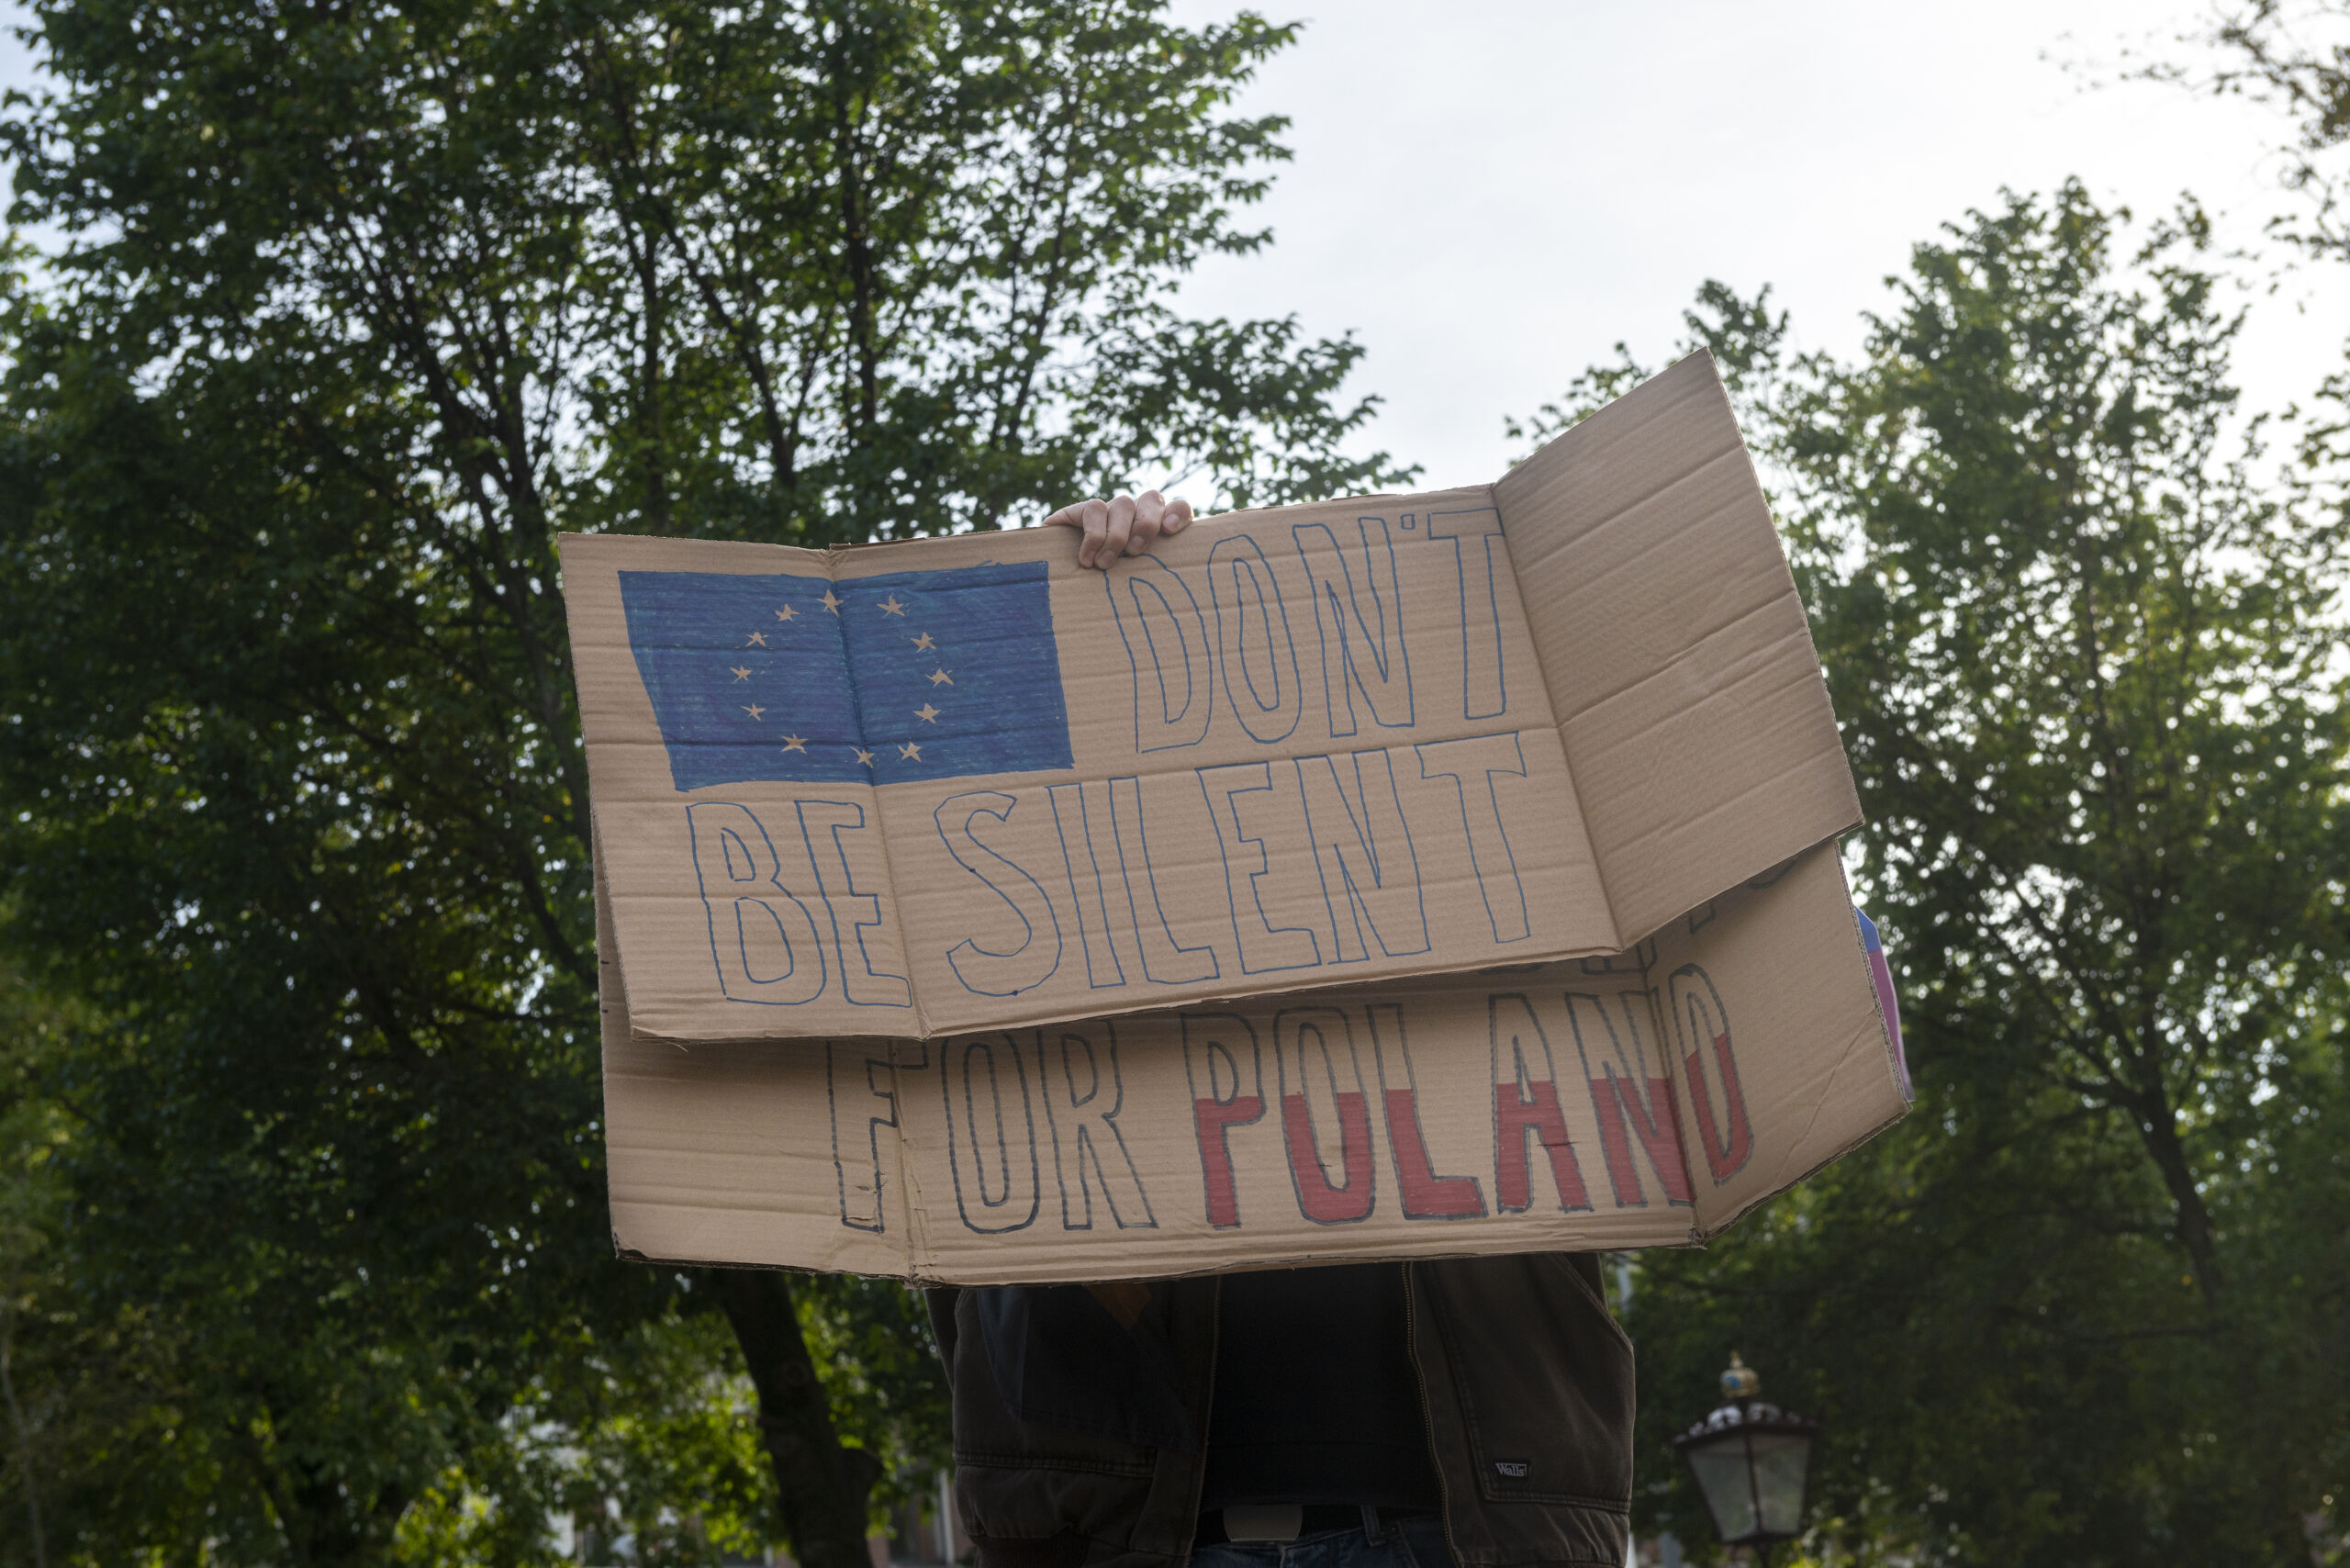 DON'T
BE SILENT
FOR POLAND
Walls